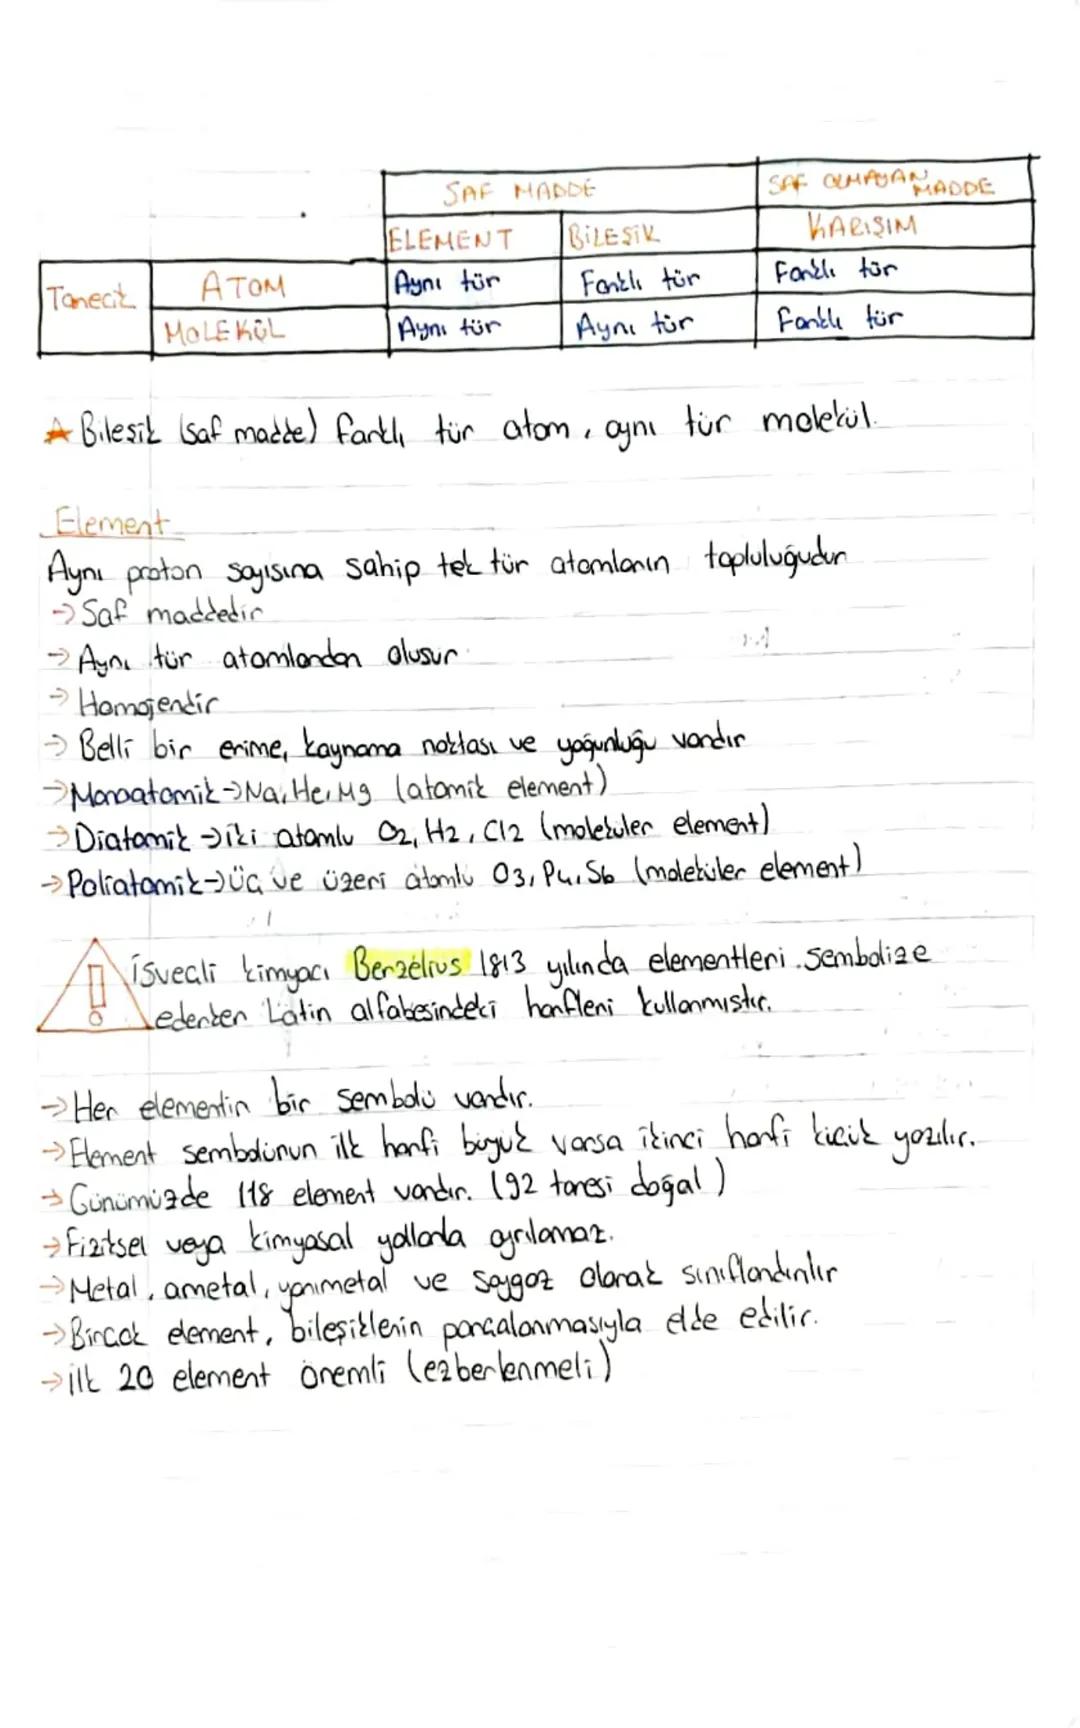 SAF MADDE SAF OLMAYAN MADDE
ELEMENT BİLEŞİK KARIŞIM
Tanecik ATOM Aynı tür Farklı tür Farklı tür
MOLEKÜL Aynı tür Aynı tür Farklı tür
Bileşik (saf madde) farklı tür atom, aynı tür molekül.
Element
Aynı proton sayısına sahip tek tür atomların topluluğudur
→ Saf maddedir
→ Aynı tür atomlardan oluşur
→ Homojendir
→ Belli bir erime, kaynama noktası ve yoğunluğu vardır
→ Monoatomik → Na, He, Mg (atomik element)
→ Diatomik → iki atomlu O2, H2, Cl2 (moleküler element)
→ Poliatomik → Üç ve üzeri atomlu O3, P4, S6 (moleküler element)
İsveçli kimyacı Berzelius 1813 yılında elementleri sembolize
ederken Latin alfabesindeki harfleri kullanmıştır.
→ Her elementin bir sembolü vardır.
→ Element sembolünün ilk harfi büyük varsa ikinci harfi küçük yazılır.
→ Günümüzde 118 element vardır. (92 tanesi doğal)
→ Fiziksel veya kimyasal yollarla ayrılamaz.
→ Metal, ametal, yarımetal ve soygaz olarak sınıflandırılır
→ Birçok element, bileşiklerin parçalanmasıyla elde edilir.
→ ilk 20 element önemli (ezberlenmeli)